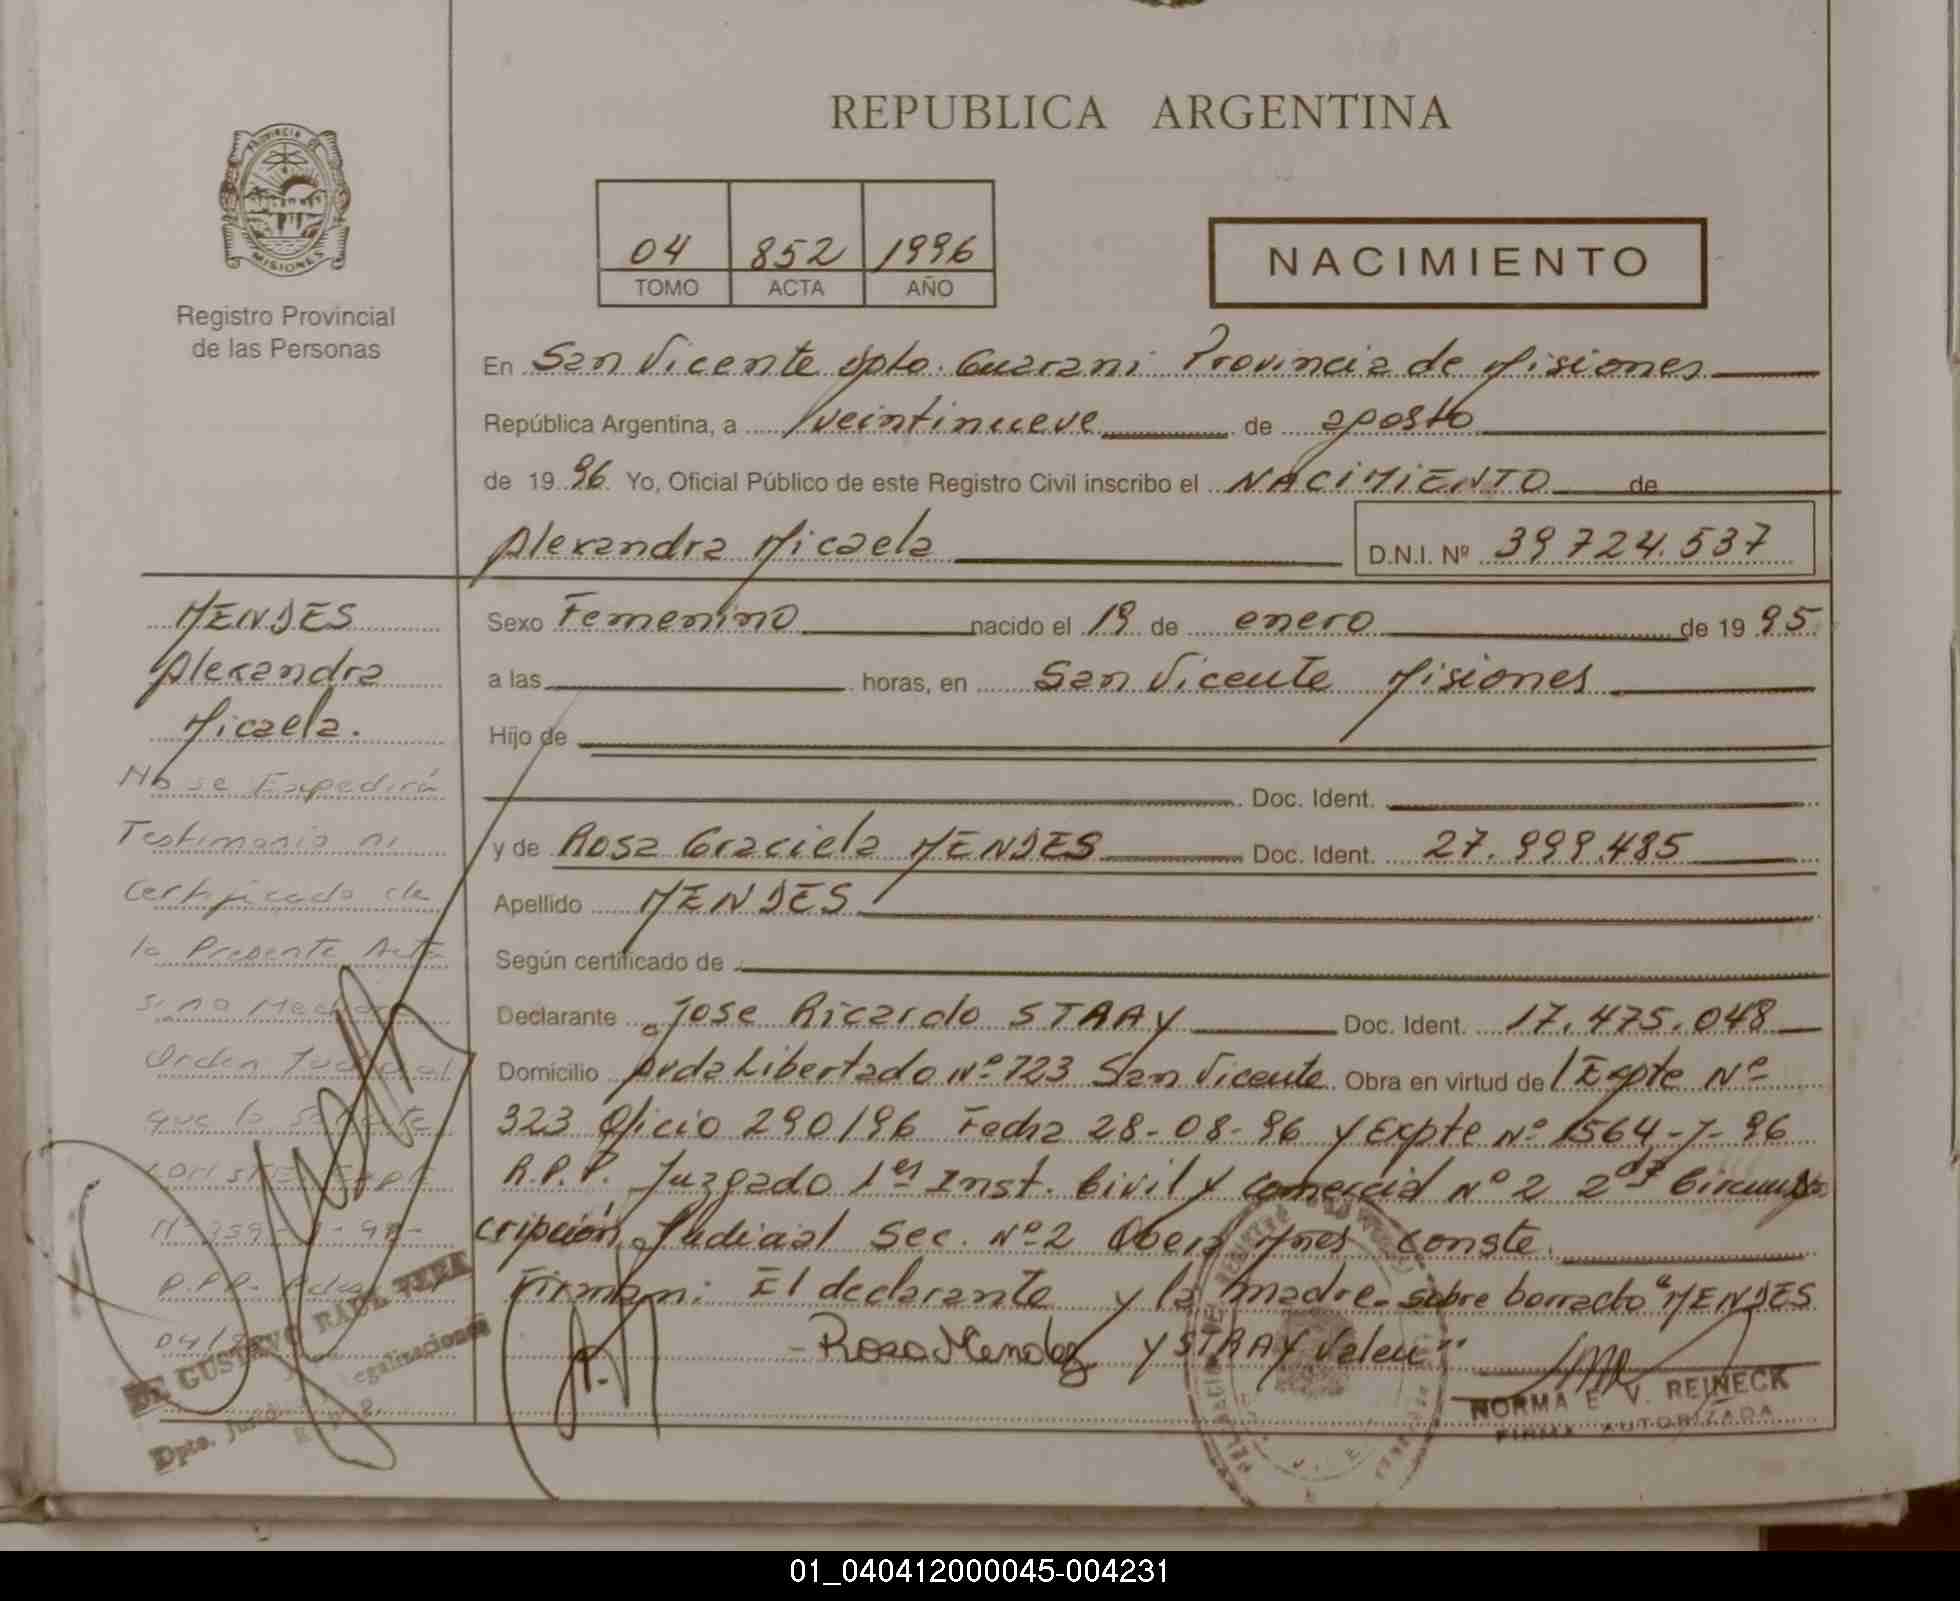 REPUBLICA ARGENTINA
PROVINCIA DE
MISIONES
Registro Provincial
de las Personas
04 852 1996
TOMO ACTA AÑO
NACIMIENTO
En San Vicente Dpto. Guarani Provincia de Misiones
República Argentina, a veintinueve de agosto
de 1996 Yo, Oficial Público de este Registro Civil inscribo el NACIMIENTO de
Alexandra Micaela D.N.I. Nº 39724.537
MENDES
Alexandra
Micaela.
No se Expedirá
Testimonio ni
Certificado de
la Presente Acta
si no Media
Orden Judicial
que lo
Nº 359
R.P.P.
04/
Sexo Femenino nacido el 19 de enero de 1995
a las horas, en San Vicente Misiones
Hijo de
Doc. Ident.
y de Rosa Graciela MENDES Doc. Ident. 27.999.485
Apellido MENDES
Según certificado de
Declarante Jose Ricardo STRAY Doc. Ident. 17.475.048
Domicilio Avda Libertado Nº 723 San Vicente Obra en virtud de Expte Nº
323 Oficio 290/96 Fecha 28-08-96 y Expte Nº 1564-7-96
R.P.P. Juzgado 1er Inst. Civil y Comercial Nº 2 2da Circuns
cripción Judicial Sec. Nº 2 Obera Mnes conste.
Firman: El declarante y la madre. sobre borrado "MENDES
Rosa Mendez y STRAY Valen"
NORMA E. V. REINECK
FIRMA AUTORIZADA
Dr. GUSTAVO RAUL VERA
Dpto. Legalizaciones
01_040412000045-004231